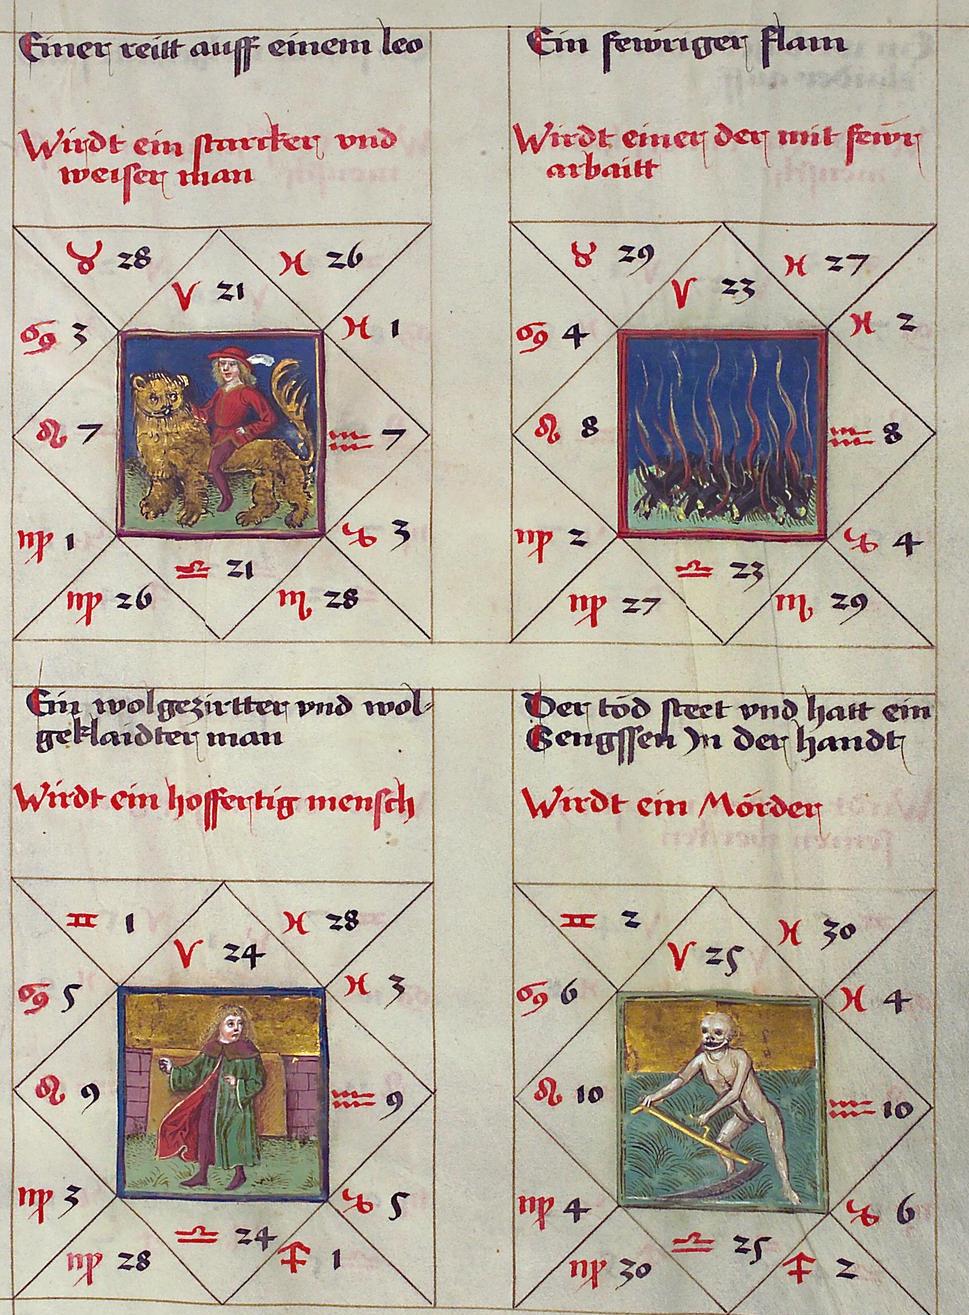 Einer reitt auff einem leo
Wirdt ein starcker vnd
weiser man
♉ 28
♓ 26
♈ 21
♋ 3
♓ 1
♌ 7
♒ 7
♍ 1
♑ 3
♎ 21
♍ 26
♏ 28
Ein fewriger flam
Wirdt einer der mit fewr
arbaitt
♉ 29
♓ 27
♈ 23
♋ 4
♓ 2
♌ 8
♒ 8
♍ 2
♑ 4
♎ 23
♍ 27
♏ 29
Ein wolgezirtter vnd wol-
geklaidter man
Wirdt ein hoffertig mensch
♊ 1
♓ 28
♈ 24
♋ 5
♓ 3
♌ 9
♒ 9
♍ 3
♑ 5
♎ 24
♍ 28
♐ 1
Der tod steet vnd hatt ein
Sengssen Jn der handt
Wirdt ein Mörder
♊ 2
♓ 30
♈ 25
♋ 6
♓ 4
♌ 10
♒ 10
♍ 4
♑ 6
♎ 25
♍ 30
♐ 2